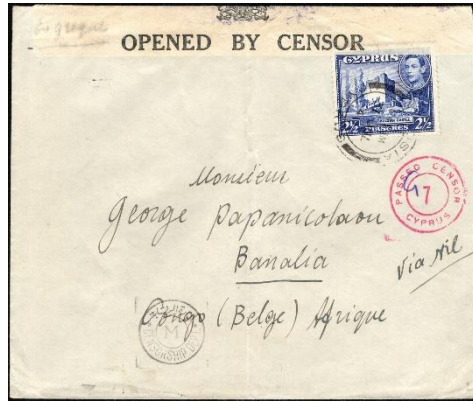 OPENED BY CENSOR
CYPRUS
2½ PIASTRES 2½
PASSED CENSOR
7
CYPRUS
Monsieur
George Papanicolaou
Banalia
Via Nil
Congo (Belge) Afrique
M
CENSORSHIP DEPT